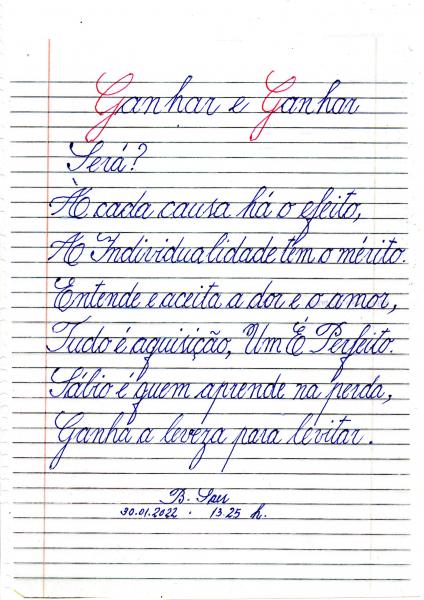 Ganhar e Ganhar
Será?
À cada causa há o efeito,
A Individualidade tem o mérito.
Entende e aceita a dor e o amor,
Tudo é aquisição, Um É Perfeito.
Sábio é quem aprende na perda,
Ganha a leveza para levitar.
B.
30.01.2022 . 13 25 h.